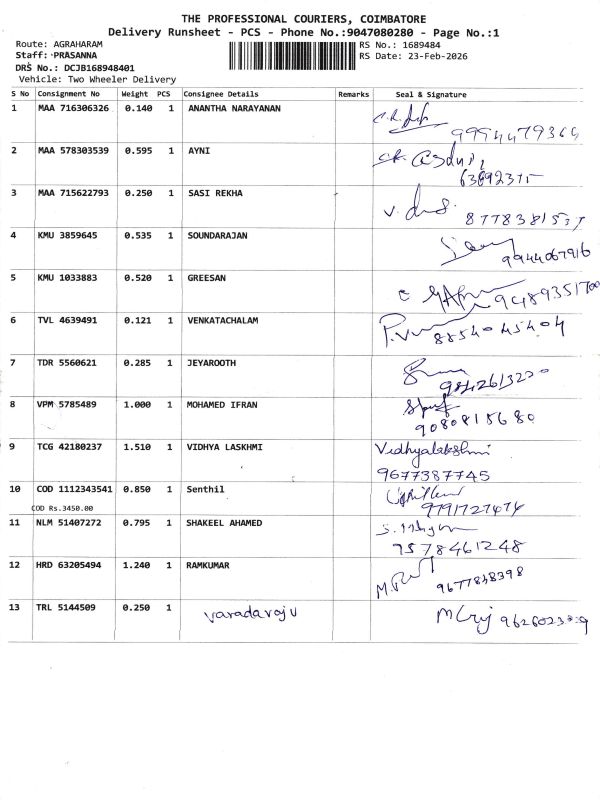 THE PROFESSIONAL COURIERS, COIMBATORE
Delivery Runsheet - PCS - Phone No.:9047080280 - Page No.:1
Route: AGRAHARAM RS No.: 1689484
Staff: PRASANNA RS Date: 23-Feb-2026
DRS No.: DCJB168948401
Vehicle: Two Wheeler Delivery
S No Consignment No Weight PCS Consignee Details Remarks Seal & Signature
1 MAA 716306326 0.140 1 ANANTHA NARAYANAN
2 MAA 578303539 0.595 1 AYNI
3 MAA 715622793 0.250 1 SASI REKHA
4 KMU 3859645 0.535 1 SOUNDARAJAN
9944067916
5 KMU 1033883 0.520 1 GREESAN
9489351700
6 TVL 4639491 0.121 1 VENKATACHALAM
8854045404
7 TDR 5560621 0.285 1 JEYAROOTH
8 VPM 5785489 1.000 1 MOHAMED IFRAN
9080815680
9 TCG 42180237 1.510 1 VIDHYA LASKHMI Vidhyalakshmi
9677387745
10 COD 1112343541 0.850 1 Senthil
COD Rs.3450.00 9791727474
11 NLM 51407272 0.795 1 SHAKEEL AHAMED
7578461248
12 HRD 63205494 1.240 1 RAMKUMAR
9677848398
13 TRL 5144509 0.250 1 Varadaraju